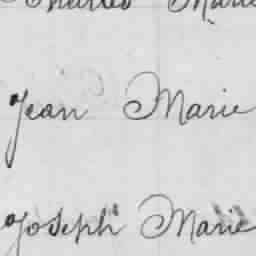 Charles Marie
Jean Marie
Joseph Marie